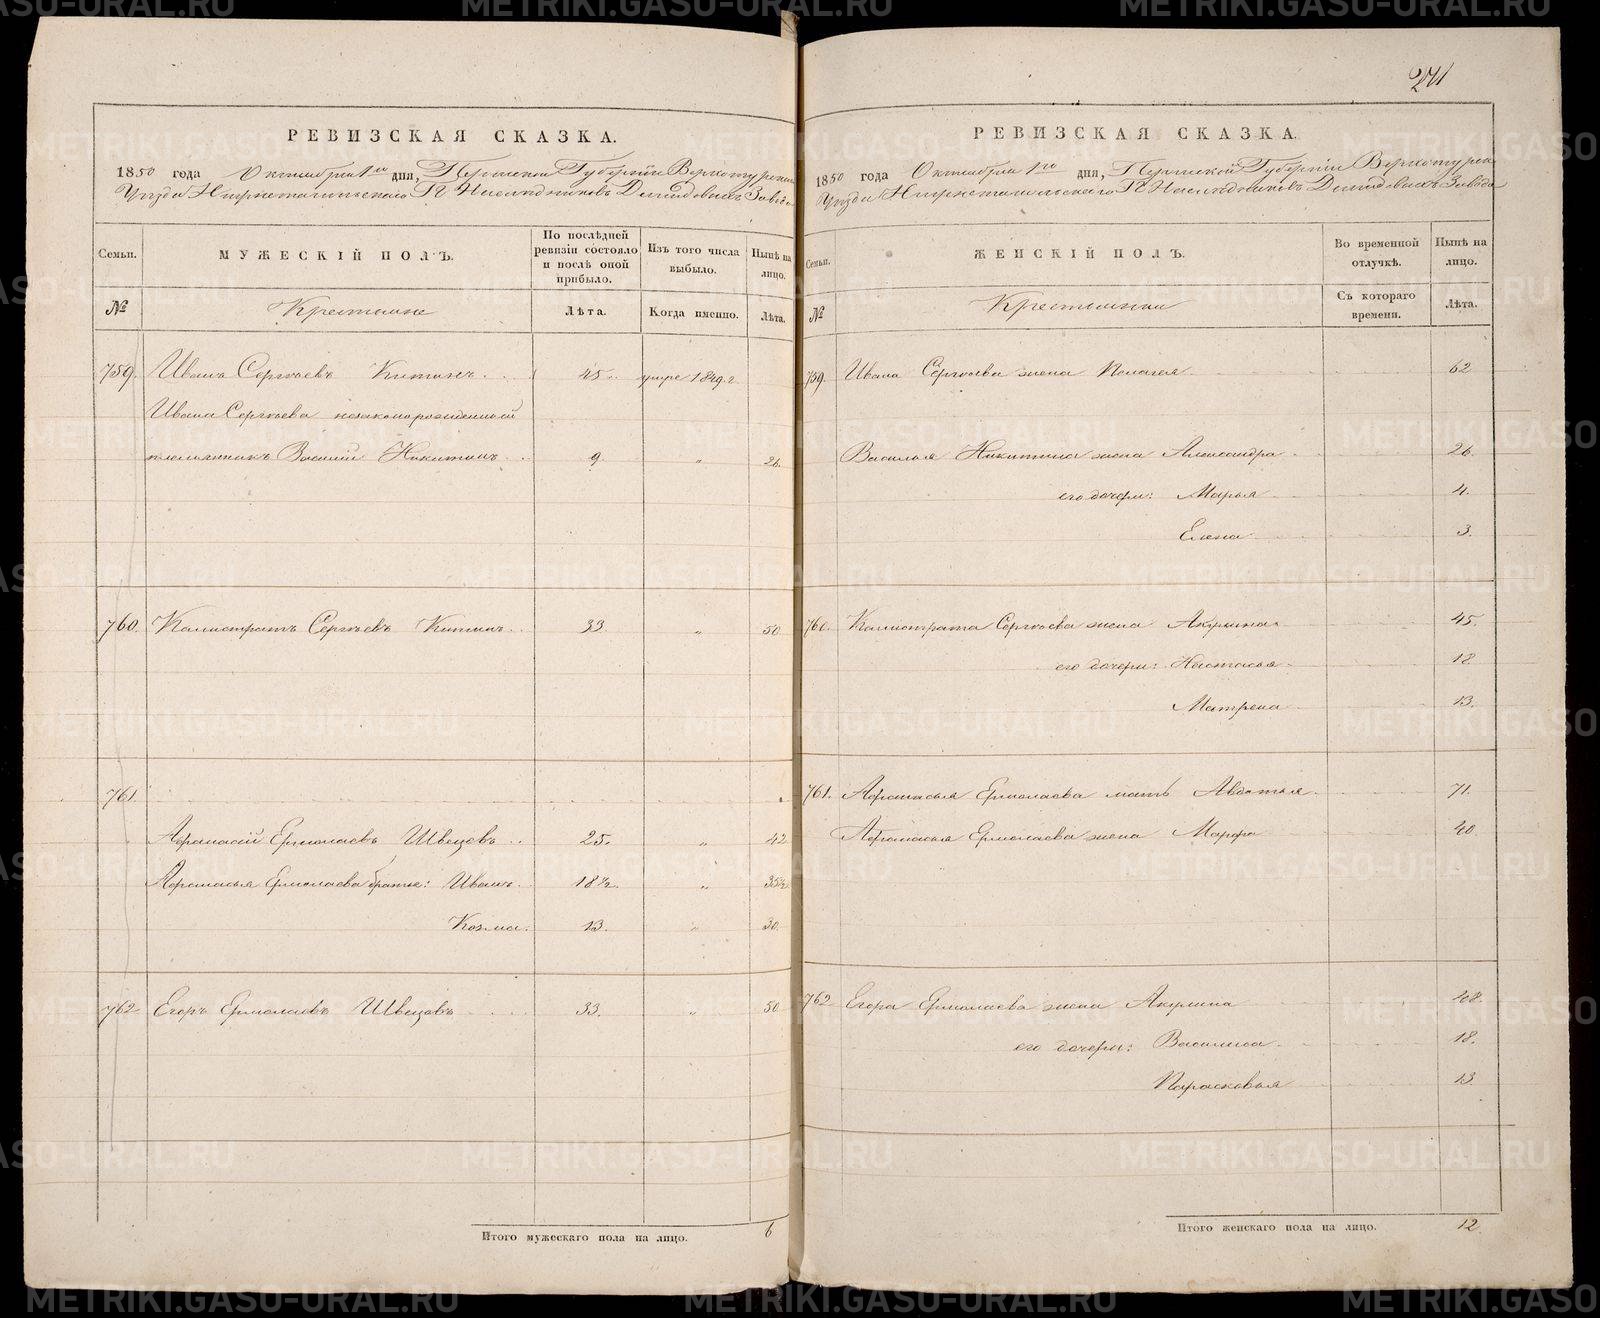 271
РЕВИЗСКАЯ СКАЗКА.
1850 года Октября 1го дня, Пермской Губерніи Верхотурскаго
Уѣзда Нижнетагильскаго Гг. Наслѣдниковъ Демидовыхъ Завода
Семьи.
МУЖЕСКІЙ ПОЛЪ.
По послѣдней ревизіи состояло и послѣ оной прибыло.
Изъ того числа выбыло.
Нынѣ на лицо.
№
Крестьяне
Лѣта.
Когда именно.
Лѣта.
759. Иванъ Сергѣевъ Китинъ 45 умре 1849 г.
Ивана Сергѣева незаконорожденный
племянникъ Василій Никитинъ 9 „ 26.
760. Калистратъ Сергѣевъ Китинъ 33. „ 50
761.
Афанасій Ермолаевъ Швецовъ 25. „ 42
Афанасья Ермолаева братья: Иванъ 18½ „ 35½
Козма 13. „ 30.
762 Егоръ Ермолаевъ Швецовъ 33. „ 50
Итого мужескаго пола на лицо. 6
РЕВИЗСКАЯ СКАЗКА.
1850 года Октября 1го дня, Пермской Губерніи Верхотурска
Уѣзда Нижнетагильскаго Гг. Наслѣдниковъ Демидовыхъ Завода
Семьи.
ЖЕНСКІЙ ПОЛЪ.
Во временной отлучкѣ.
Нынѣ на лицо.
№
Крестьянки
Съ котораго времени.
Лѣта.
759. Ивана Сергѣева жена Пелагея 62
Василья Никитина жена Александра 26
его дочери: Марья 4.
Елена 3.
760. Калистрата Сергѣева жена Акулина 45.
его дочери: Настасья 18
Матрена 13.
761. Афанасья Ермолаева мать Авдотья 71.
Афанасья Ермолаева жена Марфа 40
762 Егора Ермолаева жена Акулина 48.
его дочери: Василиса 18.
Парасковья 13.
Итого женскаго пола на лицо. 12
METRIKI.GASO-URAL.RU